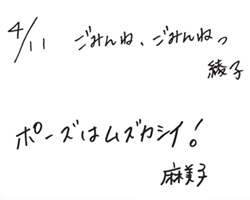 4/11 ごみんね、ごみんねっ
綾子
ポーズはムズカシイ!
麻美子